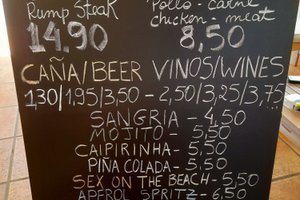 Rump Steak
14.90
Pollo - carne
chicken - meat
8,50
CAÑA/BEER VINOS/WINES
1,30/1,95/3,50 - 2,50/3,25/3,75...
SANGRIA - 4,50
MOJITO - 5,50
CAIPIRINHA - 5,50
PIÑA COLADA - 5.50
SEX ON THE BEACH - 5,50
APEROL SPRITZ - 6,50